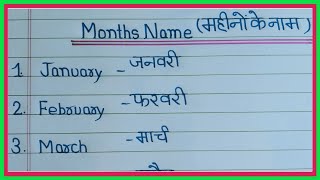 Months Name (महीनों के नाम)
1. January - जनवरी
2. February - फरवरी
3. March - मार्च